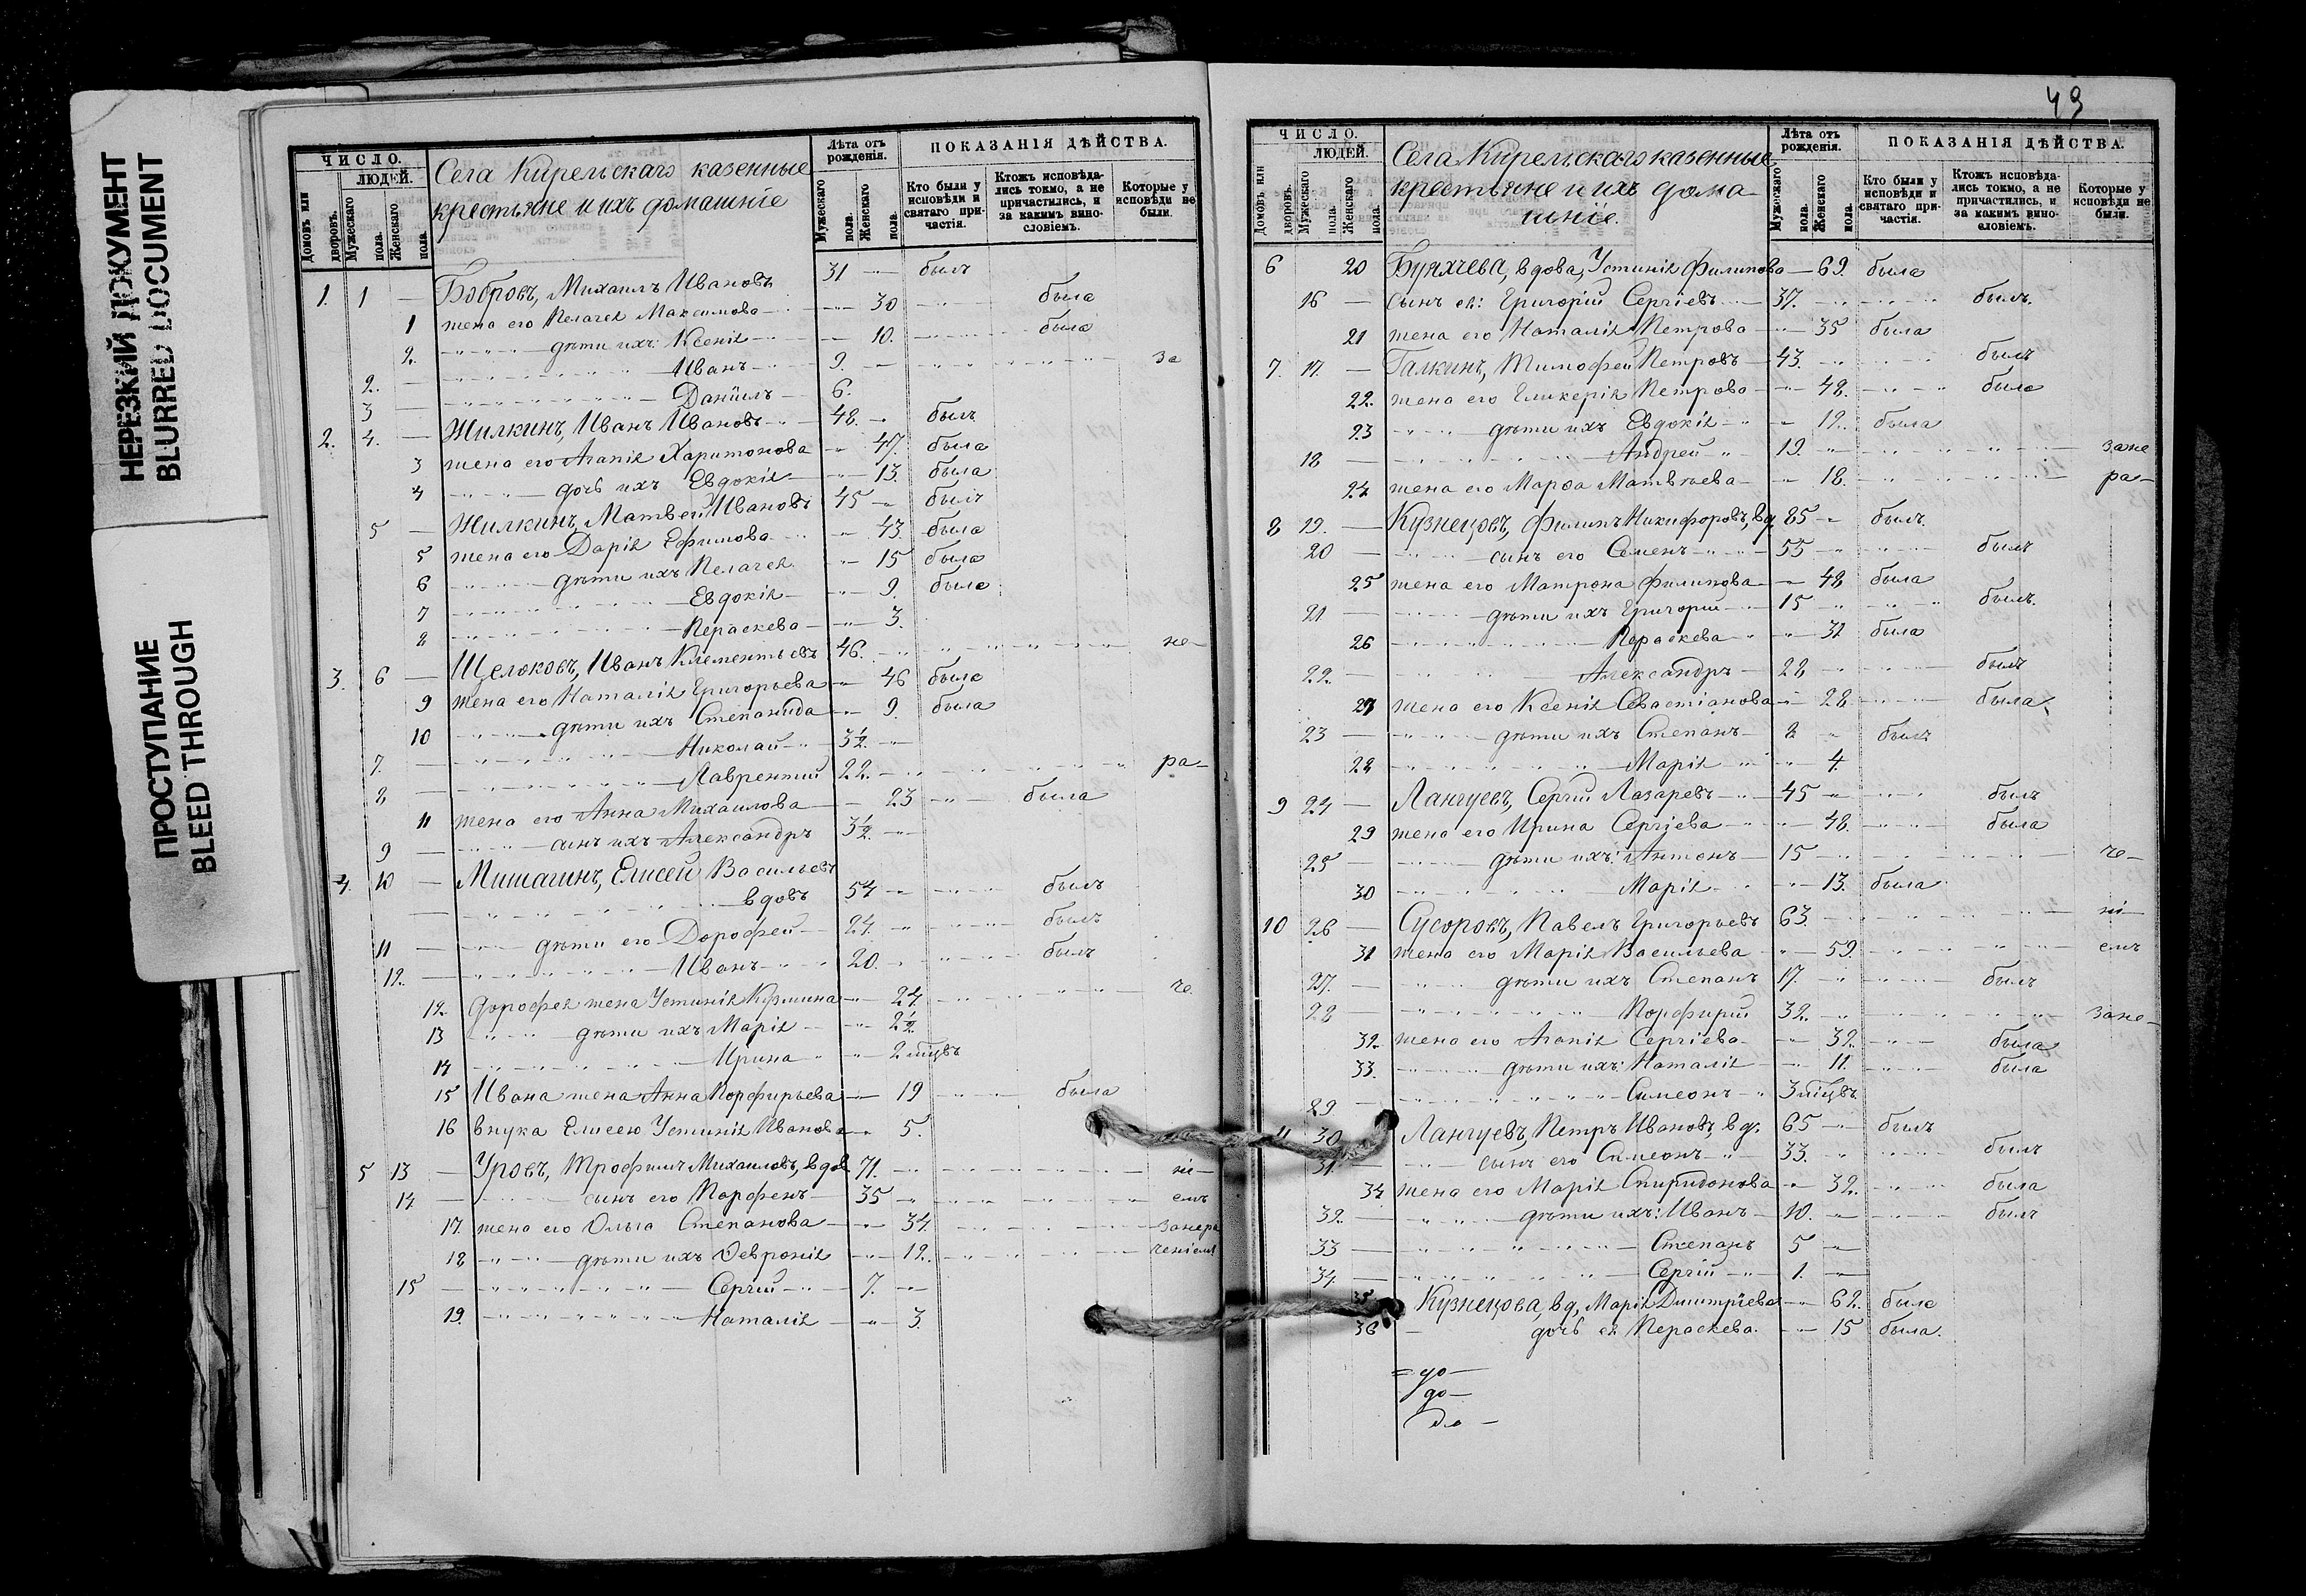 НЕРЕЗКИЙ ДОКУМЕНТ
BLURRED DOCUMENT
ПРОСТУПАНИЕ
BLEED THROUGH
ЧИСЛО.
ЛЮДЕЙ.
Домовъ или дворовъ.
Мужескаго пола.
Женскаго пола.
Села Кирельскаго казенные
крестьяне и ихъ домашніе
Лѣта отъ рожденія.
Мужескаго пола.
Женскаго пола.
ПОКАЗАНІЯ ДѢЙСТВА.
Кто были у исповѣди и святаго причастія.
Ктожъ исповѣдались токмо, а не причастились, и за какимъ винословіемъ.
Которые у исповѣди не были.
1. 1 — Бобровъ, Михаилъ Ивановъ 31 — былъ
1 жена его Пелагея Максимова — 30 была
2. дѣти ихъ: Ксенія — 10. была
2. — Иванъ 9. — за
3 — Даніилъ 6.
2. 4. — Жилкинъ, Иванъ Ивановъ 48. былъ
3 жена его Агапія Харитонова 47. была
4 дочь ихъ Евдокія 13. была
5 — Жилкинъ, Матвей Ивановъ 45 былъ
5 жена его Дарія Ефимова 43. была
6 дѣти ихъ Пелагея 15 была
7 Евдокія 9. была
8 Параскева 3.
3. 6 — Щелоковъ, Иванъ Клементьевъ 46. не-
9 жена его Наталія Григорьева 46 была
10 дѣти ихъ Степанида 9. была
7. — Николай 3½
8 — Лаврентій 22. ра-
11 жена его Анна Михаилова 23 была
9 — сынъ ихъ Александръ 3½
4. 10 — Мишагинъ, Елисей Васильевъ
вдовъ 54 былъ
11 — дѣти его Дорофей 24. былъ
12. — Иванъ 20. былъ
12. Дорофея жена Устинія Козмина 24. че
13 дѣти ихъ Марія 2½
14 Ирина 2 мѣцвъ
15 Ивана жена Анна Порфирьева 19 была
16 внука Елисею Устинія Иванова 5.
5 13 — Уровъ, Трофимъ Михаиловъ, вдов. 71. ні-
14 — сынъ его Парфенъ 35 емъ
17. жена его Ольга Степанова 34 занера
18 дѣти ихъ Февронія 12. ченіемъ
15 — Сергій 7.
19. Наталія 3.
49
ЧИСЛО.
ЛЮДЕЙ.
Домовъ или дворовъ.
Мужескаго пола.
Женскаго пола.
Села Кирельскаго казенные
крестьяне и ихъ дома-
шніе.
Лѣта отъ рожденія.
Мужескаго пола.
Женскаго пола.
ПОКАЗАНІЯ ДѢЙСТВА.
Кто были у исповѣди и святаго причастія.
Ктожъ исповѣдались токмо, а не причастились, и за какимъ винословіемъ.
Которые у исповѣди не были.
6 20 вдова, Устинія Филипова — 69. была
16 — сынъ ея: Григорій Сергіевъ 37. былъ.
21 жена его Наталія Петрова 35 была
7. 17. — Галкинъ, Тимофей Петровъ 43. былъ
22. жена его Гликерія Петрова 48. была
23 дѣти ихъ Евдокія 12. была
18 — Андрей 19. зане
24 жена его Марѳа Матвѣева 18. ра-
8 19. — Кузнецовъ, Филипъ Никифоровъ, вд. 85 былъ.
20 — сынъ его Семенъ 55 былъ
25 жена его Матрона Филипова 48 была
21 — дѣти ихъ Григорій 15 былъ.
26 Параскева 32 была
22. — Александръ 28 былъ
27 жена его Ксенія Севастіанова 28 была
23 — дѣти ихъ Степанъ 8 былъ
28 Марія 4.
9 24 — Лангуевъ, Сергій Лазаревъ 45 былъ
29 жена его Ирина Сергіева 48. была
25 — дѣти ихъ: Антонъ 15 че-
30 Марія 13. была
10 26 — Суворовъ, Павелъ Григорьевъ 63. ні-
31 жена его Марія Васильева 59. емъ
27. — дѣти ихъ Степанъ 17. былъ
28 — Порфирій 32. зане-
32. жена его Агапія Сергіева 32. была
33. дѣти ихъ: Наталія 11. была
29 — Симеонъ 3 мѣцвъ
11 30 Лангуевъ, Петръ Ивановъ, вд. 65 былъ
31. — сынъ его Симеонъ 33. былъ
34 жена его Марія Спиридонова 32. была
32. — дѣти ихъ: Иванъ 10. былъ
33 — Степанъ 5
34. — Сергій 1.
35 Кузнецова, вд, Марія Дмитріева 62. была
36 дочь ея Параскева. 15 была.